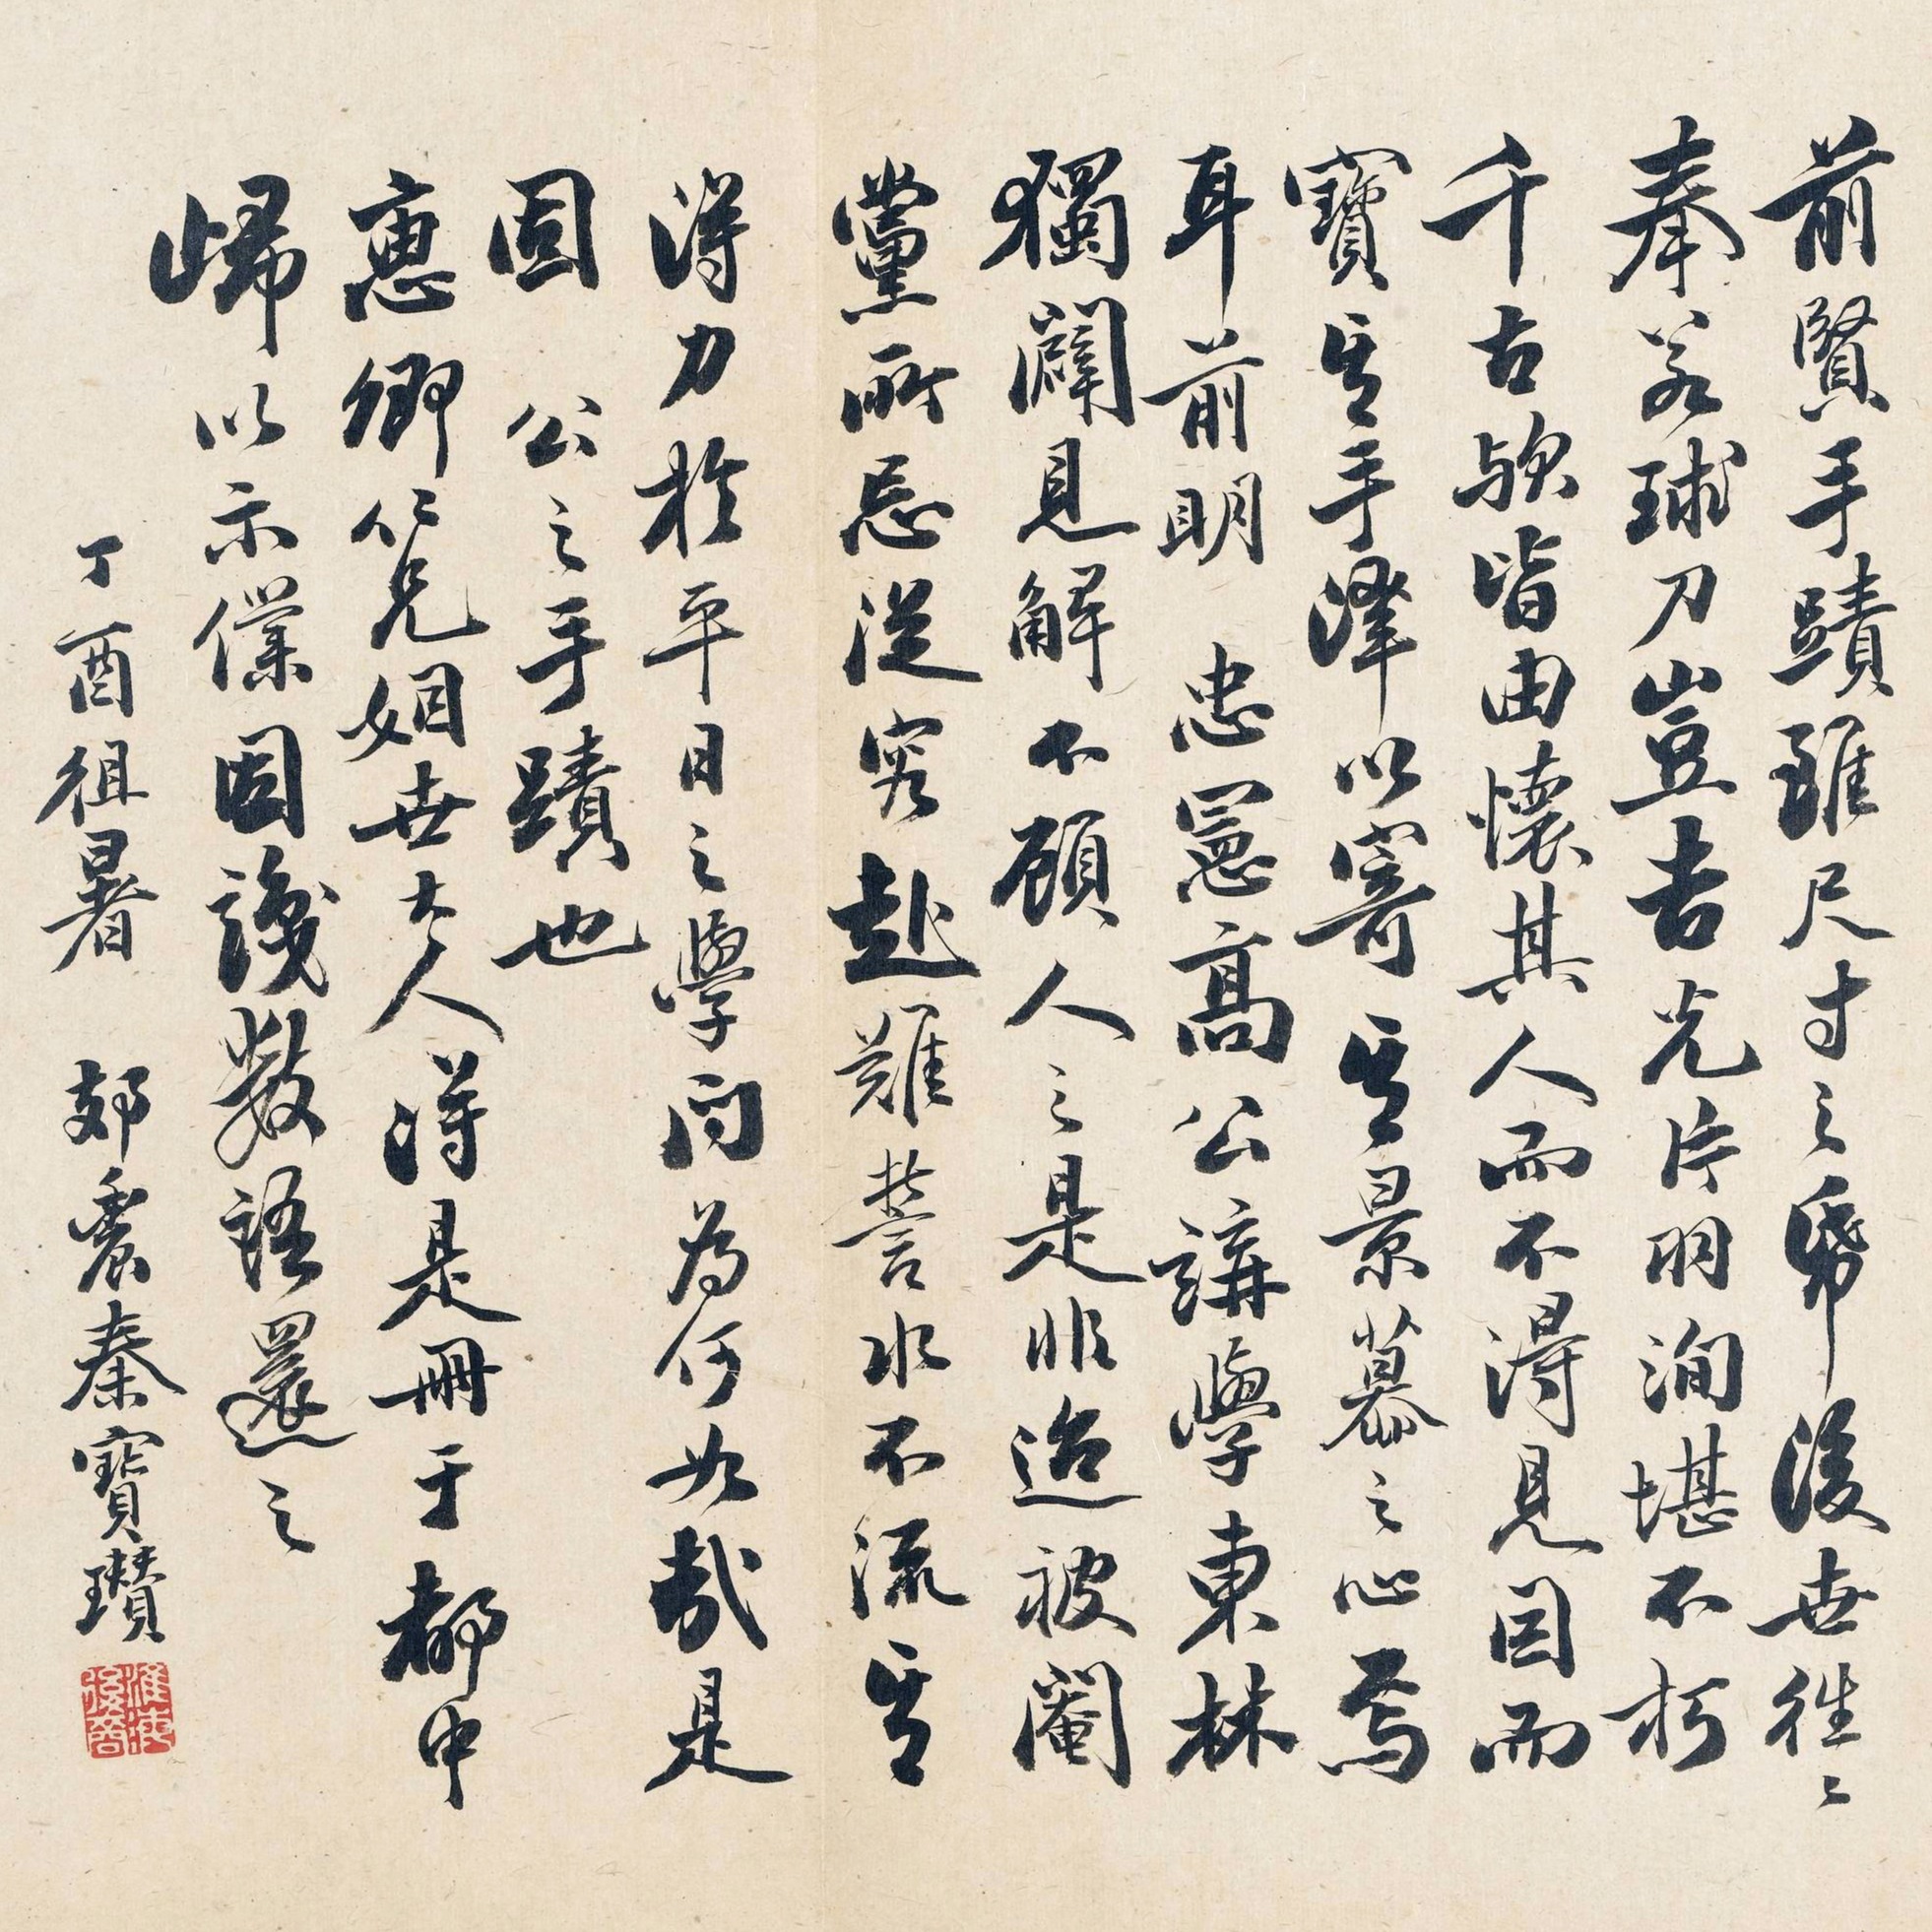 前賢手蹟雖尺寸之帋後世往〻
奉若球刀豈吉光片羽洵堪不朽
千古歟皆由懷其人而不得見因而
寶其手澤以寄其景慕之心焉
耳前明 忠憲高公講學東林
獨闢見解不顧人之是非迨被閹
黨所忌從容赴難誓水不流其
得力於平日之學问為何如哉是
固 公之手蹟也
惠卿仁兄姻世大人得是冊于都中
歸以示僕因識數語還之
丁酉徂暑 郊農秦寶瓚